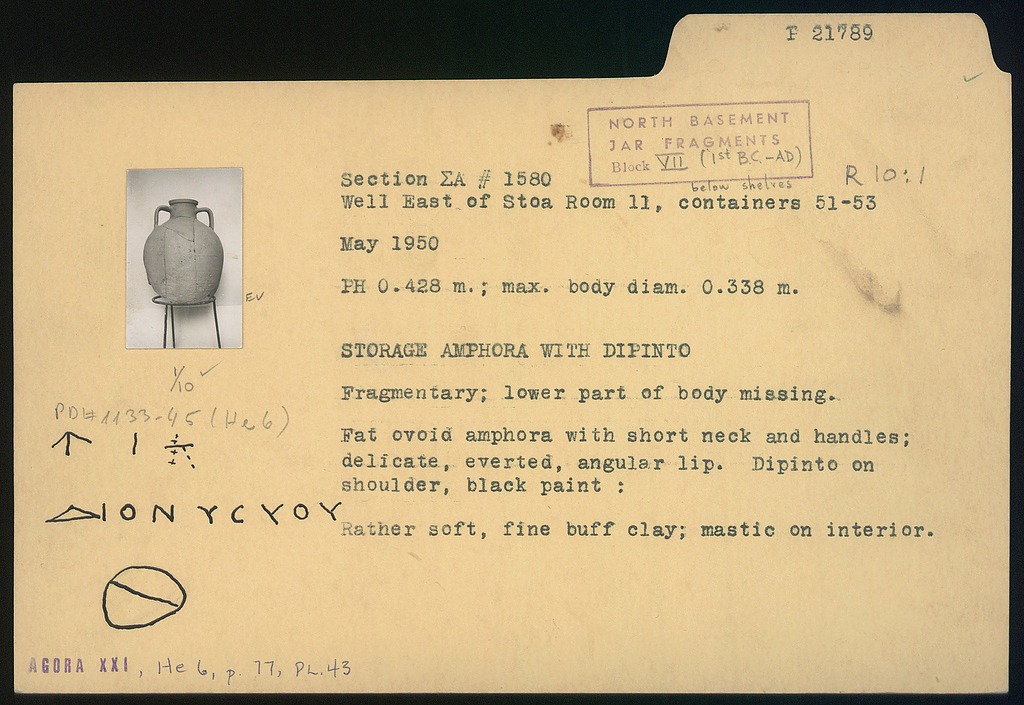 P 21789
NORTH BASEMENT
JAR FRAGMENTS
Block VII (1st B.C.-AD)
below shelves
R 10:1
Section ΣΑ # 1580
Well East of Stoa Room 11, containers 51-53
May 1950
PH 0.428 m.; max. body diam. 0.338 m.
EV
STORAGE AMPHORA WITH DIPINTO
1/10 ✓
Fragmentary; lower part of body missing.
PD# 1133-45 (He 6)
Fat ovoid amphora with short neck and handles;
delicate, everted, angular lip. Dipinto on
shoulder, black paint :
ΔΙΟΝΥCΥΟΥ
Rather soft, fine buff clay; mastic on interior.
AGORA XXI, He 6, p. 77, PL. 43